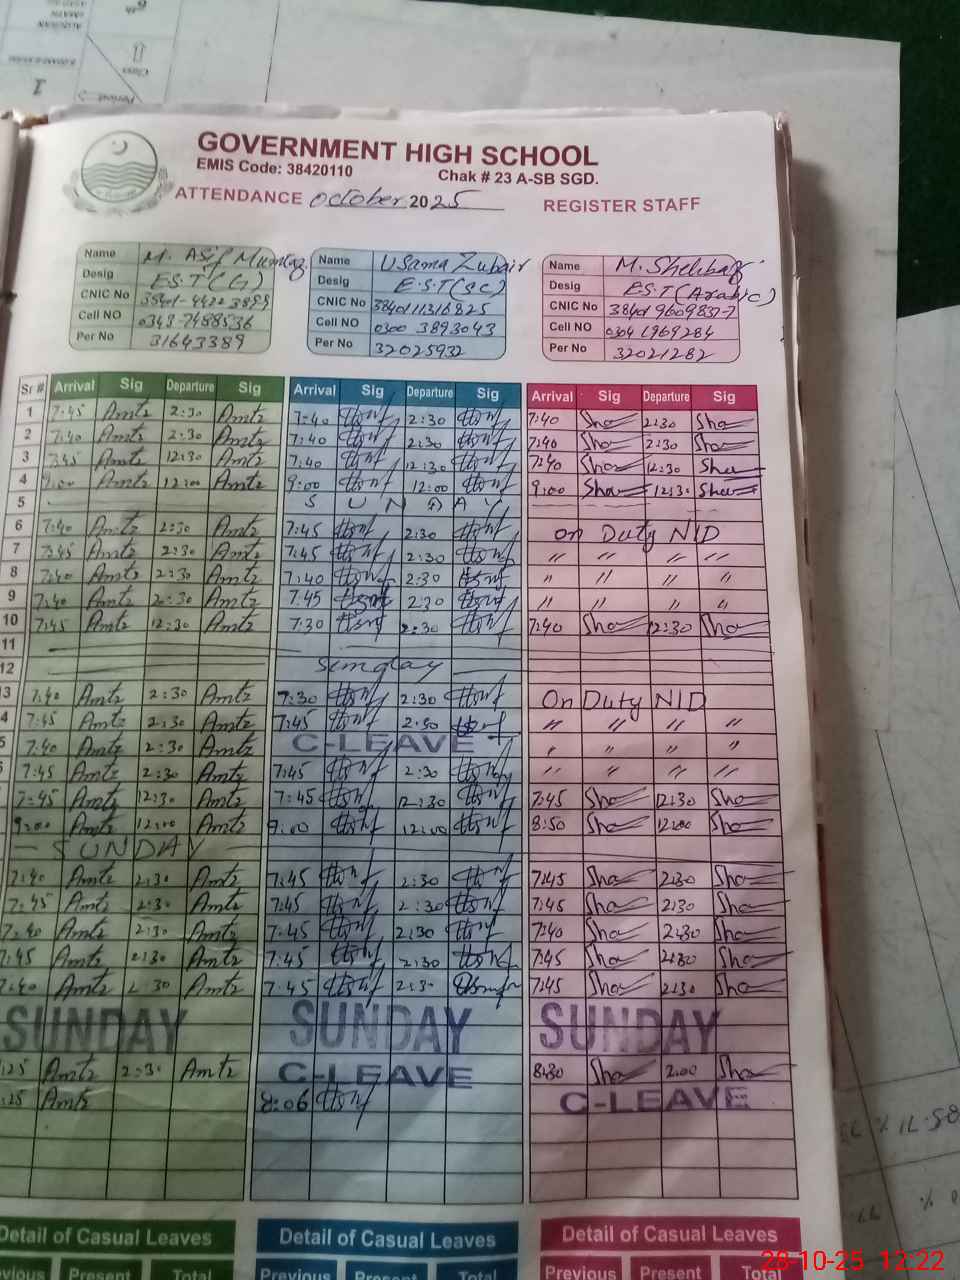 GOVERNMENT HIGH SCHOOL
EMIS Code: 38420110 Chak # 23 A-SB SGD.
ATTENDANCE October 2025 REGISTER STAFF
Name M. Asif Mumtaz Name Usama Zubair Name M. Shehbaz
Desig E.S.T(G) Desig E.S.T(SC) Desig E.S.T(Arabic)
CNIC No CNIC No 3840111316825 CNIC No 38401 9609837-7
Cell NO 0343-7488536 Cell NO 0300 3893043 Cell NO 0304 6969284
Per No 31643389 Per No 32025932 Per No 32021282
Sr # Arrival Sig Departure Sig Arrival Sig Departure Sig Arrival Sig Departure Sig
1 7:45 Amtz 2:30 Amtz 7:40 2:30 7:40 Sha 2:30 Sha
2 7:40 Amtz 2:30 Amtz 7:40 2:30 7:40 Sha 2:30 Sha
3 7:45 Amtz 12:30 Amtz 7:40 12:30 7:40 Sha 12:30 Sha
4 9:00 Amtz 12:00 Amtz 9:00 12:00 9:00 Sha 12:30 Sha
5 SUNDAY
6 7:40 Amtz 2:30 Amtz 7:45 2:30 on Duty NID
7 7:45 Amtz 2:30 Amtz 7:45 2:30 〃 〃 〃 〃
8 7:40 Amtz 2:30 Amtz 7:40 2:30 〃 〃 〃 〃
9 7:40 Amtz 2:30 Amtz 7:45 2:30 〃 〃 〃 〃
10 7:45 Amtz 12:30 Amtz 7:30 2:30 7:40 Sha 12:30 Sha
11
12 Sunday
13 7:40 Amtz 2:30 Amtz 7:30 2:30 On Duty NID
4 7:45 Amtz 2:30 Amtz 7:45 2:30 〃 〃 〃 〃
5 7:40 Amtz 2:30 Amtz C-LEAVE 〃 〃 〃 〃
7:45 Amtz 2:30 Amtz 7:45 2:30 〃 〃 〃 〃
7:45 Amtz 12:30 Amtz 7:45 12:30 7:45 Sha 12:30 Sha
9:00 Amtz 12:00 Amtz 9:00 12:00 8:50 Sha 12:00 Sha
SUNDAY
7:40 Amtz 2:30 Amtz 7:45 2:30 7:45 Sha 2:30 Sha
7:45 Amtz 2:30 Amtz 7:45 2:30 7:45 Sha 2:30 Sha
7:40 Amtz 2:30 Amtz 7:45 2:30 7:40 Sha 2:30 Sha
7:45 Amtz 2:30 Amtz 7:45 2:30 7:45 Sha 2:30 Sha
7:40 Amtz 2:30 Amtz 7:45 2:30 7:45 Sha 2:30 Sha
SUNDAY SUNDAY SUNDAY
:25 Amtz 2:30 Amtz C-LEAVE 8:30 Sha 2:00 Sha
:25 Amtz 8:06 C-LEAVE
Detail of Casual Leaves Detail of Casual Leaves Detail of Casual Leaves
Previous Present Total Previous Present Total Previous Present Total
28-10-25 12:22